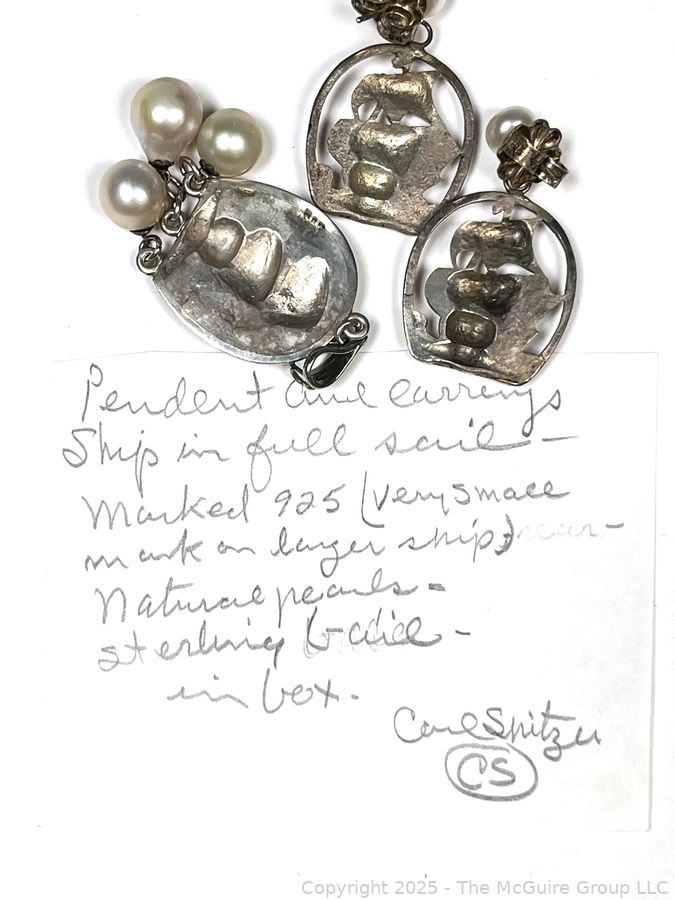 Pendent and earrings
Ship in full sail -
Marked 925 (very small
mark on larger ship)
Natural pearls -
sterling
in box.
Carl Spitzer
CS
Copyright 2025 - The McGuire Group LLC